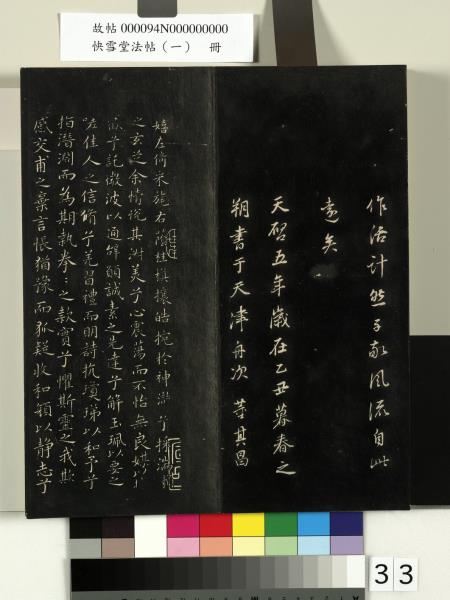 故帖 000094N000000000
快雪堂法帖（一） 冊
作活計然子敬風流自此
遠矣
天啓五年歲在乙丑暮春之
朔書于天津舟次 董其昌
嬉左倚采旄右蔭桂旗攘皓捥於神滸兮採湍瀨
之玄芝余情悅其淑美兮心震蕩而不怡無良媒以
兮託微波以通辭願誠素之先達兮解玉珮以要之
嗟佳人之信脩兮羌習禮而明詩抗瓊珶以和予兮
指潛淵而為期執拳拳之款實兮懼斯靈之我欺
感交甫之棄言悵猶豫而狐疑收和顏以靜志兮
33